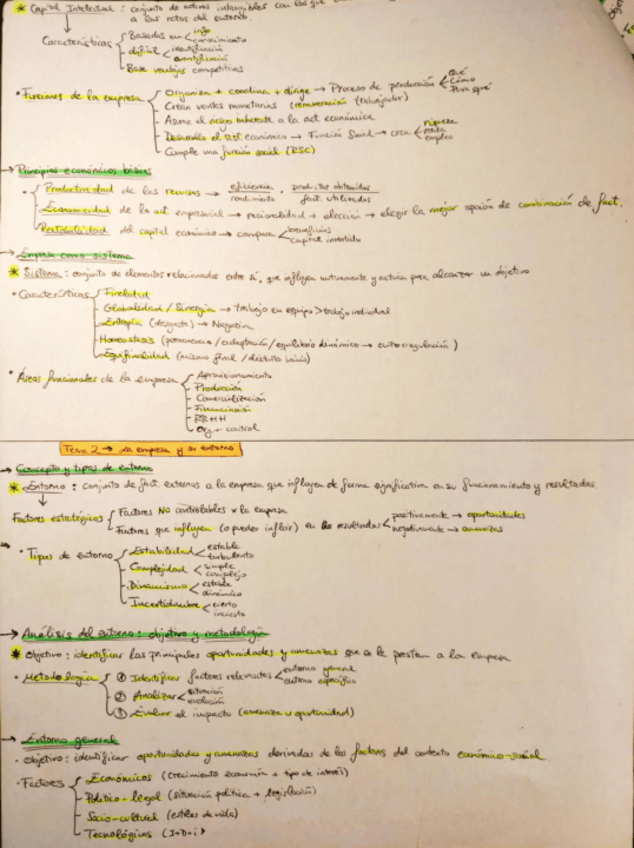 * Capital Intelectual : conjunto de activos intangibles con los que
a los retos del entorno
Características
Basados en
info
conocimiento
difícil
identificación
cuantificación
Base ventajas competitivas
• Funciones de la empresa
- Organizan + coordina + dirige → Proceso de producción
Qué
Cómo
Para qué
- Crean rentas monetarias (remuneración trabajador)
- Asume el riesgo inherente a la act. económica
- Desarrolla el act económico → Función social → crea
riqueza
renta
empleo
- Cumple una función social (RSC)
→ Principios económicos básicos
• - Productividad de los recursos →
eficiencia
rendimiento
productos obtenidos
fact. utilizados
- Economicidad de la act. empresarial → racionalidad + elección → elegir la mejor opción de combinación de fact.
- Rentabilidad del capital económico → compara
beneficios
capital invertido
→ Empresa como sistema
* Sistema : conjunto de elementos relacionados entre sí, que influyen mutuamente y actúan para alcanzar un objetivo
• Características
- Finalidad
- Globalidad / Sinergia → trabajo en equipo > trabajo individual
- Entropía (desgaste) → Negativa
- Homeostasis (permanencia / adaptación / equilibrio dinámico → autorregulación)
- Equifinalidad (mismo final / distinto inicio)
• Áreas funcionales de la empresa
- Aprovisionamiento
- Producción
- Comercialización
- Financiación
- RRHH
- Org + control
Tema 2 → La empresa y su entorno
→ Concepto y tipos de entorno
* Entorno : conjunto de fact. externos a la empresa que influyen de forma significativa en su funcionamiento y resultados
Factores estratégicos
- Factores No controlables x la empresa
- Factores que influyen (o pueden influir) en los resultados
positivamente → oportunidades
negativamente → amenazas
• Tipos de entorno
- Estabilidad
estable
turbulento
- Complejidad
simple
complejo
- Dinamismo
estable
dinámico
- Incertidumbre
cierto
incierto
→ Análisis del entorno : objetivo y metodología
* Objetivo : identificar las principales oportunidades y amenazas que se le prestan a la empresa
• Metodología
① Identificar factores relevantes
entorno general
entorno específico
② Analizar
situación
evolución
③ Evaluar el impacto (amenaza u oportunidad)
→ Entorno general
• Objetivo : identificar oportunidades y amenazas derivadas de los factores del contexto económico-social
• Factores
- Económicos (crecimiento economía + tipo de interés)
- Político-legal (situación política + legislación)
- Socio-cultural (estilos de vida)
- Tecnológicos (I+D+i)